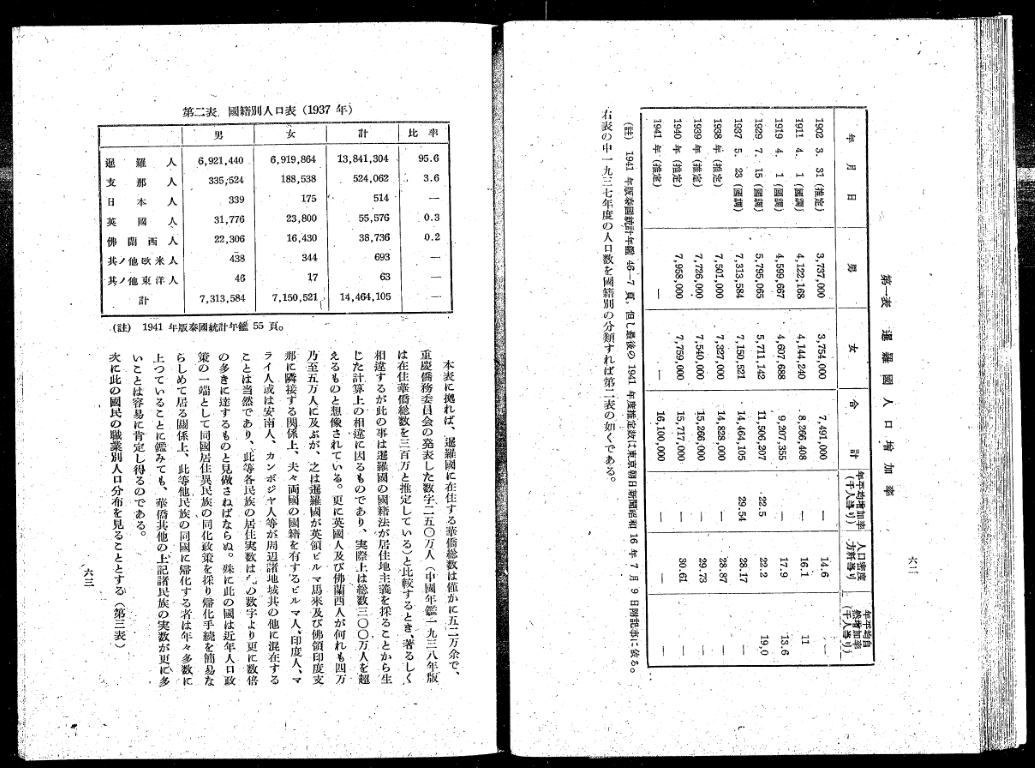 六二
第一表 暹羅國人口増加率
年月日 男 女 合計 年平均増加率(千人當り) 人口密度方粁當り 年平均自然増加率(千人當り)
1902 3. 31 (推定) 3,737,000 3,754,000 7,491,000 — 14.6 —
1911 4. 1 (國調) 4,122,168 4,144,240 8,266,408 — 16.1 11
1919 4. 1 (國調) 4,599,667 4,607,688 9,207,355 — 17.9 13.6
1929 7. 15 (國調) 5,795,065 5,711,142 11,506,207 22.5 22.2 19.0
1937 5. 23 (國調) 7,313,584 7,150,521 14,464,105 29.54 28.17
1938 年 (推定) 7,501,000 7,327,000 14,828,000 — 28.87
1939 年 (推定) 7,726,000 7,540,000 15,266,000 — 29.73
1940 年 (推定) 7,958,000 7,759,000 15,717,000 — 30.61
1941 年 (推定) — — 16,100,000 — —
(註) 1941 年版泰國統計年鑑 46—7 頁、但し最後の 1941 年度推定数は東京朝日新聞昭和 16 年 7 月 9 日附記事に依る。
右表の中一九三七年度の人口数を國籍別の分類すれば第二表の如くである。
第二表 國籍別人口表 (1937 年)
男 女 計 比率
暹羅人 6,921,440 6,919,864 13,841,304 95.6
支那人 335,524 188,538 524,062 3.6
日本人 339 175 514 —
英國人 31,776 23,800 55,576 0.3
佛蘭西人 22,306 16,430 38,736 0.2
其ノ他歐米人 438 344 693 —
其ノ他東洋人 46 17 63 —
計 7,313,584 7,150,521 14,464,105 —
(註) 1941 年版泰國統計年鑑 55 頁。
本表に拠れば、暹羅國に在住する華僑総数は僅かに五二万余で、
重慶僑務委員会の発表した数字二五〇万人(中國年鑑一九三八年版
は在住華僑総数を三百万と推定している)と比較するとき、著るしく
相違するが此の事は暹羅國の國籍法が居住地主義を採ることから生
じた計算上の相違に因るものであり、実際上は総数三〇〇万人を超
えるものと想像されている。更に英國人及び佛蘭西人が何れも四万
乃至五万人に及ぶが、之は暹羅國が英領ビルマ馬来及び佛領印度支
那に隣接する関係上、夫々両國の國籍を有するビルマ人、印度人、マ
ライ人或は安南人、カンボジヤ人等が周辺諸地域其の他に混在する
ことは当然であり、此等各民族の居住実数は の数字より更に数倍
の多きに達するものと見做さねばならぬ。殊に此の國は近年人口政
策の一端として同國居住異民族の同化政策を採り帰化手続を簡易な
らしめて居る関係上、此等他民族の同國に帰化する者は年々多数に
上つていることに鑑みても、華僑其他の上記諸民族の実数が更に多
いことは容易に肯定し得るのである。
次に此の國民の職業別人口分布を見ることとする(第三表)
六三